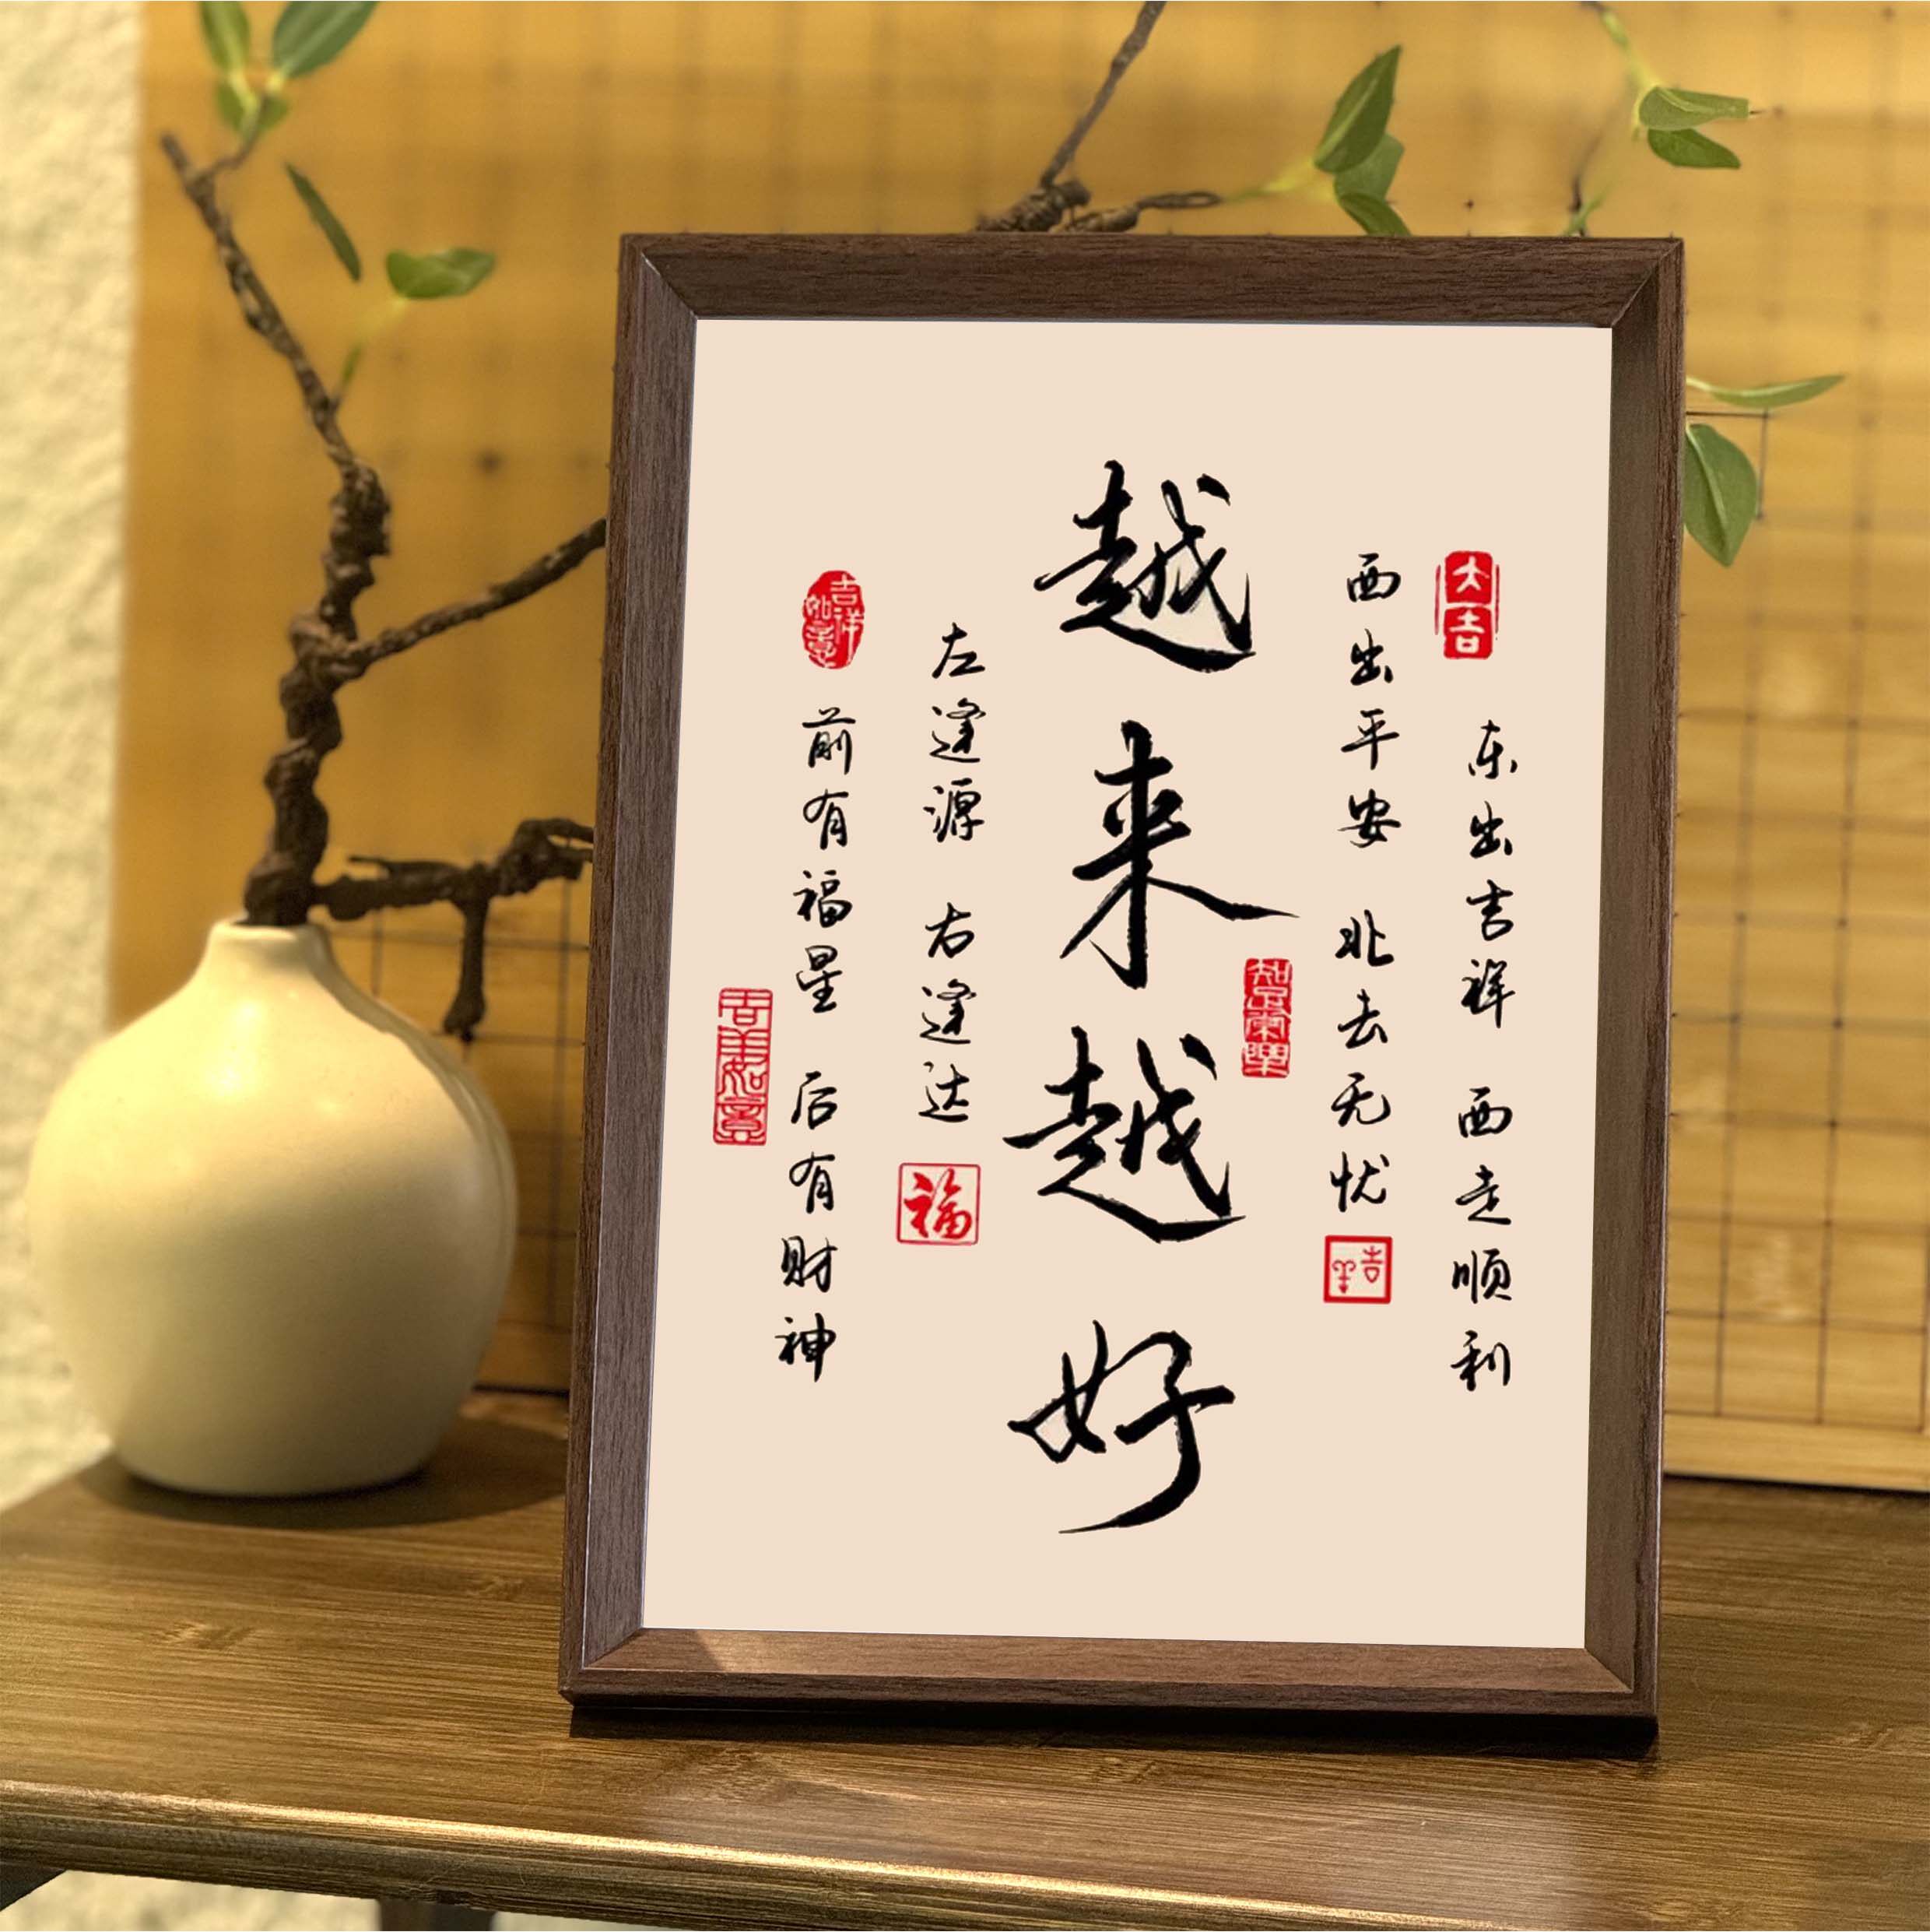 大吉
东出吉祥 西走顺利
西出平安 北去无忧
吉羊
越来越好
知足常樂
左逢源 右逢达
福
吉祥如意
前有福星 后有财神
吉羊如意